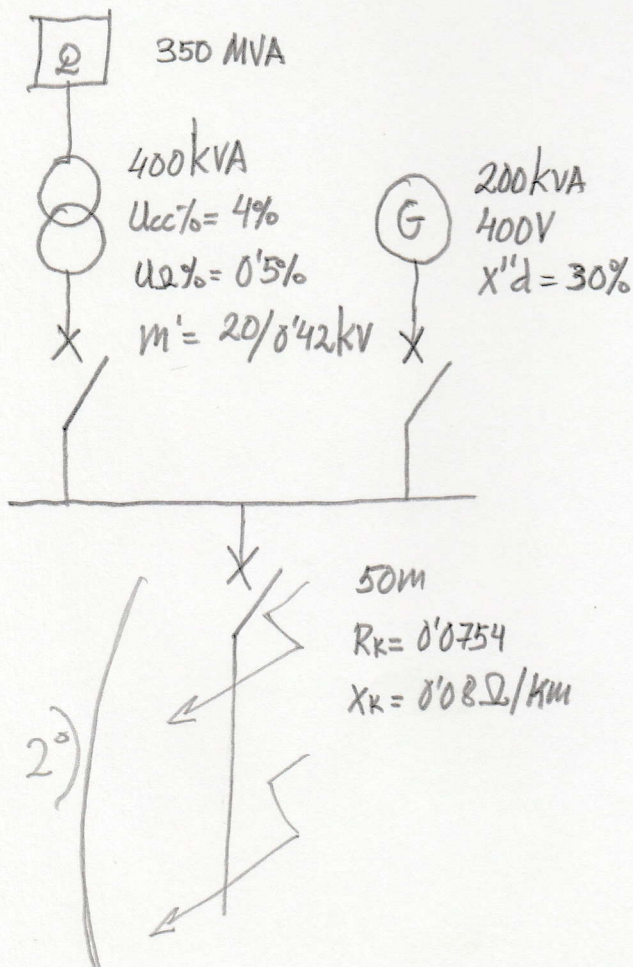 Q 350 MVA
400kVA
Ucc%= 4%
UR%= 0'5%
m'= 20/0'42kV
G
200kVA
400V
X"d = 30%
50m
RK= 0'0754
XK= 0'08Ω/Km
2°)